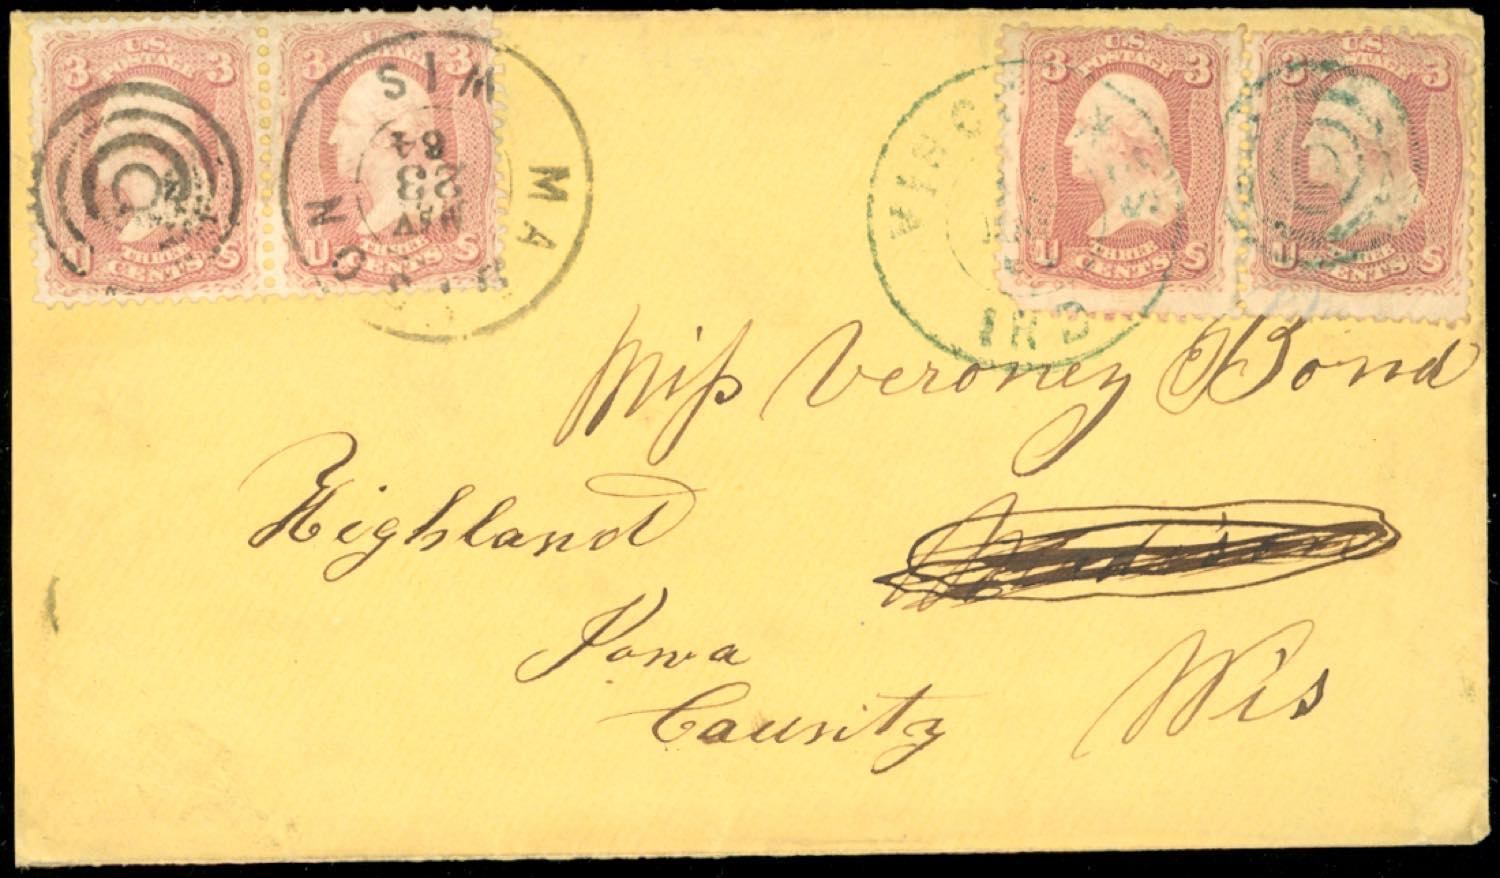 U.S. POSTAGE
3 3
U S
THREE CENTS
U.S. POSTAGE
3 3
U S
THREE CENTS
MADISON
WIS
MAY
23
64
U.S. POSTAGE
3 3
U S
THREE CENTS
U.S. POSTAGE
3 3
U S
THREE CENTS
VIRGINIA
Miss Veroney Bond
Highland
Madison
Iowa
County
Wis